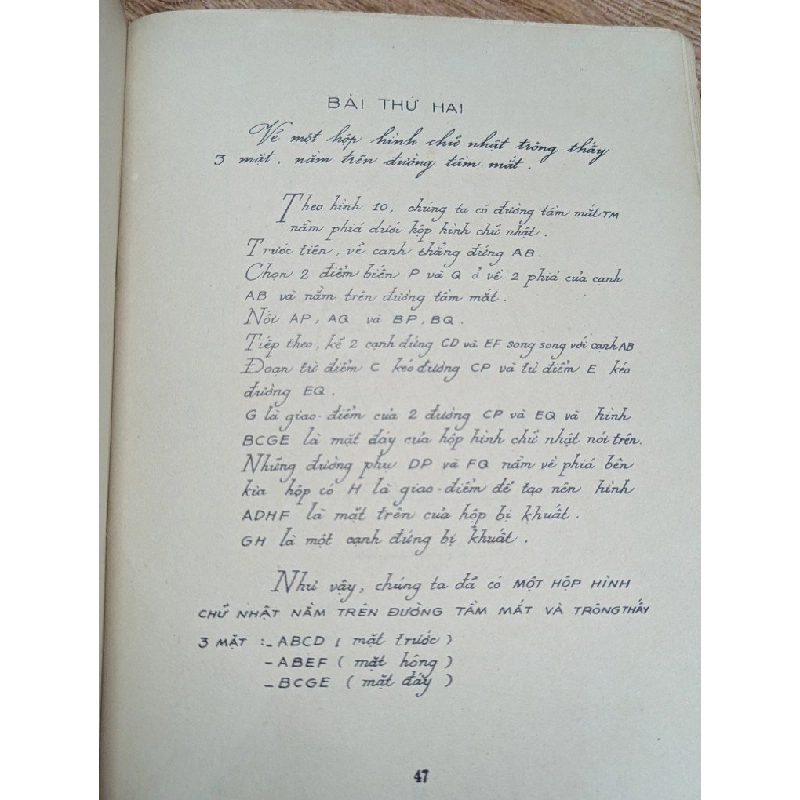 BÀI THỨ HAI
Vẽ một hộp hình chữ nhật trông thấy
3 mặt, nằm trên đường tầm mắt.
Theo hình 10, chúng ta có đường tầm mắt TM
nằm phiá dưới hộp hình chữ nhật.
Trước tiên, vẽ cạnh thẳng đứng AB.
Chọn 2 điểm biến P và Q ở về 2 phiá của cạnh
AB và nằm trên đường tầm mắt.
Nối AP, AQ và BP, BQ.
Tiếp theo, kẻ 2 cạnh đứng CD và EF song song với cạnh AB
Đoạn từ điểm C kéo đường CP và từ điểm E kéo
đường EQ.
G là giao-điểm của 2 đường CP và EQ và hình
BCGE là mặt đáy của hộp hình chữ nhật nói trên.
Những đường phụ DP và FQ nằm về phiá bên
kia hộp có H là giao-điểm để tạo nên hình
ADHF là mặt trên của hộp bị khuất.
GH là một cạnh đứng bị khuất.
Như vậy, chúng ta đã có MỘT HỘP HÌNH
CHỮ NHẬT NẰM TRÊN ĐƯỜNG TẦM MẮT VÀ TRÔNG THẤY
3 MẶT :- ABCD ( mặt trước )
- ABEF ( mặt hông )
- BCGE ( mặt đáy )
47